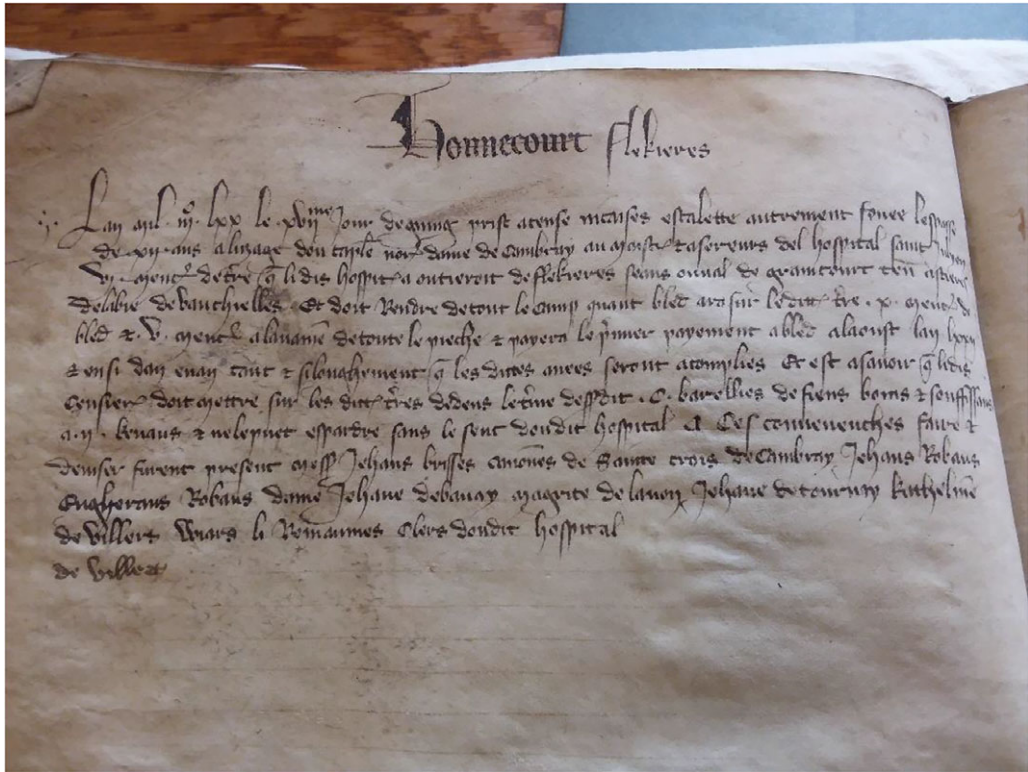 Honnecourt flekieres
Lan mil iijc lxx le xviime Jour de quing prist a cense escalette autrement fouee lespasse
de xii ans alusage dou caple nore dame de Cambray au moistr tasereurs del hospital saint Julien
vi mencr de tre q li dis hospit a ou tieroit de flekieres seans ou val de graincourt
de labie de vauchelles Et doit Rendre de tout le camp quant bled ara sur le ditte tre x mencr de
bled & v mencr a lavaine de toute le pieche & payera le pmier payement a bled alaoust lan lxxi
& ensi dan en an tant & si longhement q les dittes anees seront acomplies Et est asavoir q ledis
censier doit mettre sur les ditt tres dedens le tme desdit C barellies de fiens boins & souffissans
a ii kevaus & ne le puet espardre sans le sent doudit hospital A Ces convenenches faire &
deviser furent present mess Jehans brisses canones de Sainte crois de Cambray Jehans Robaus
Engherans Robaus dame Jehane de bavay magrite de Jehane de tournay katheline
de villers wiars li Romannes Clers doudit hospital
de villers